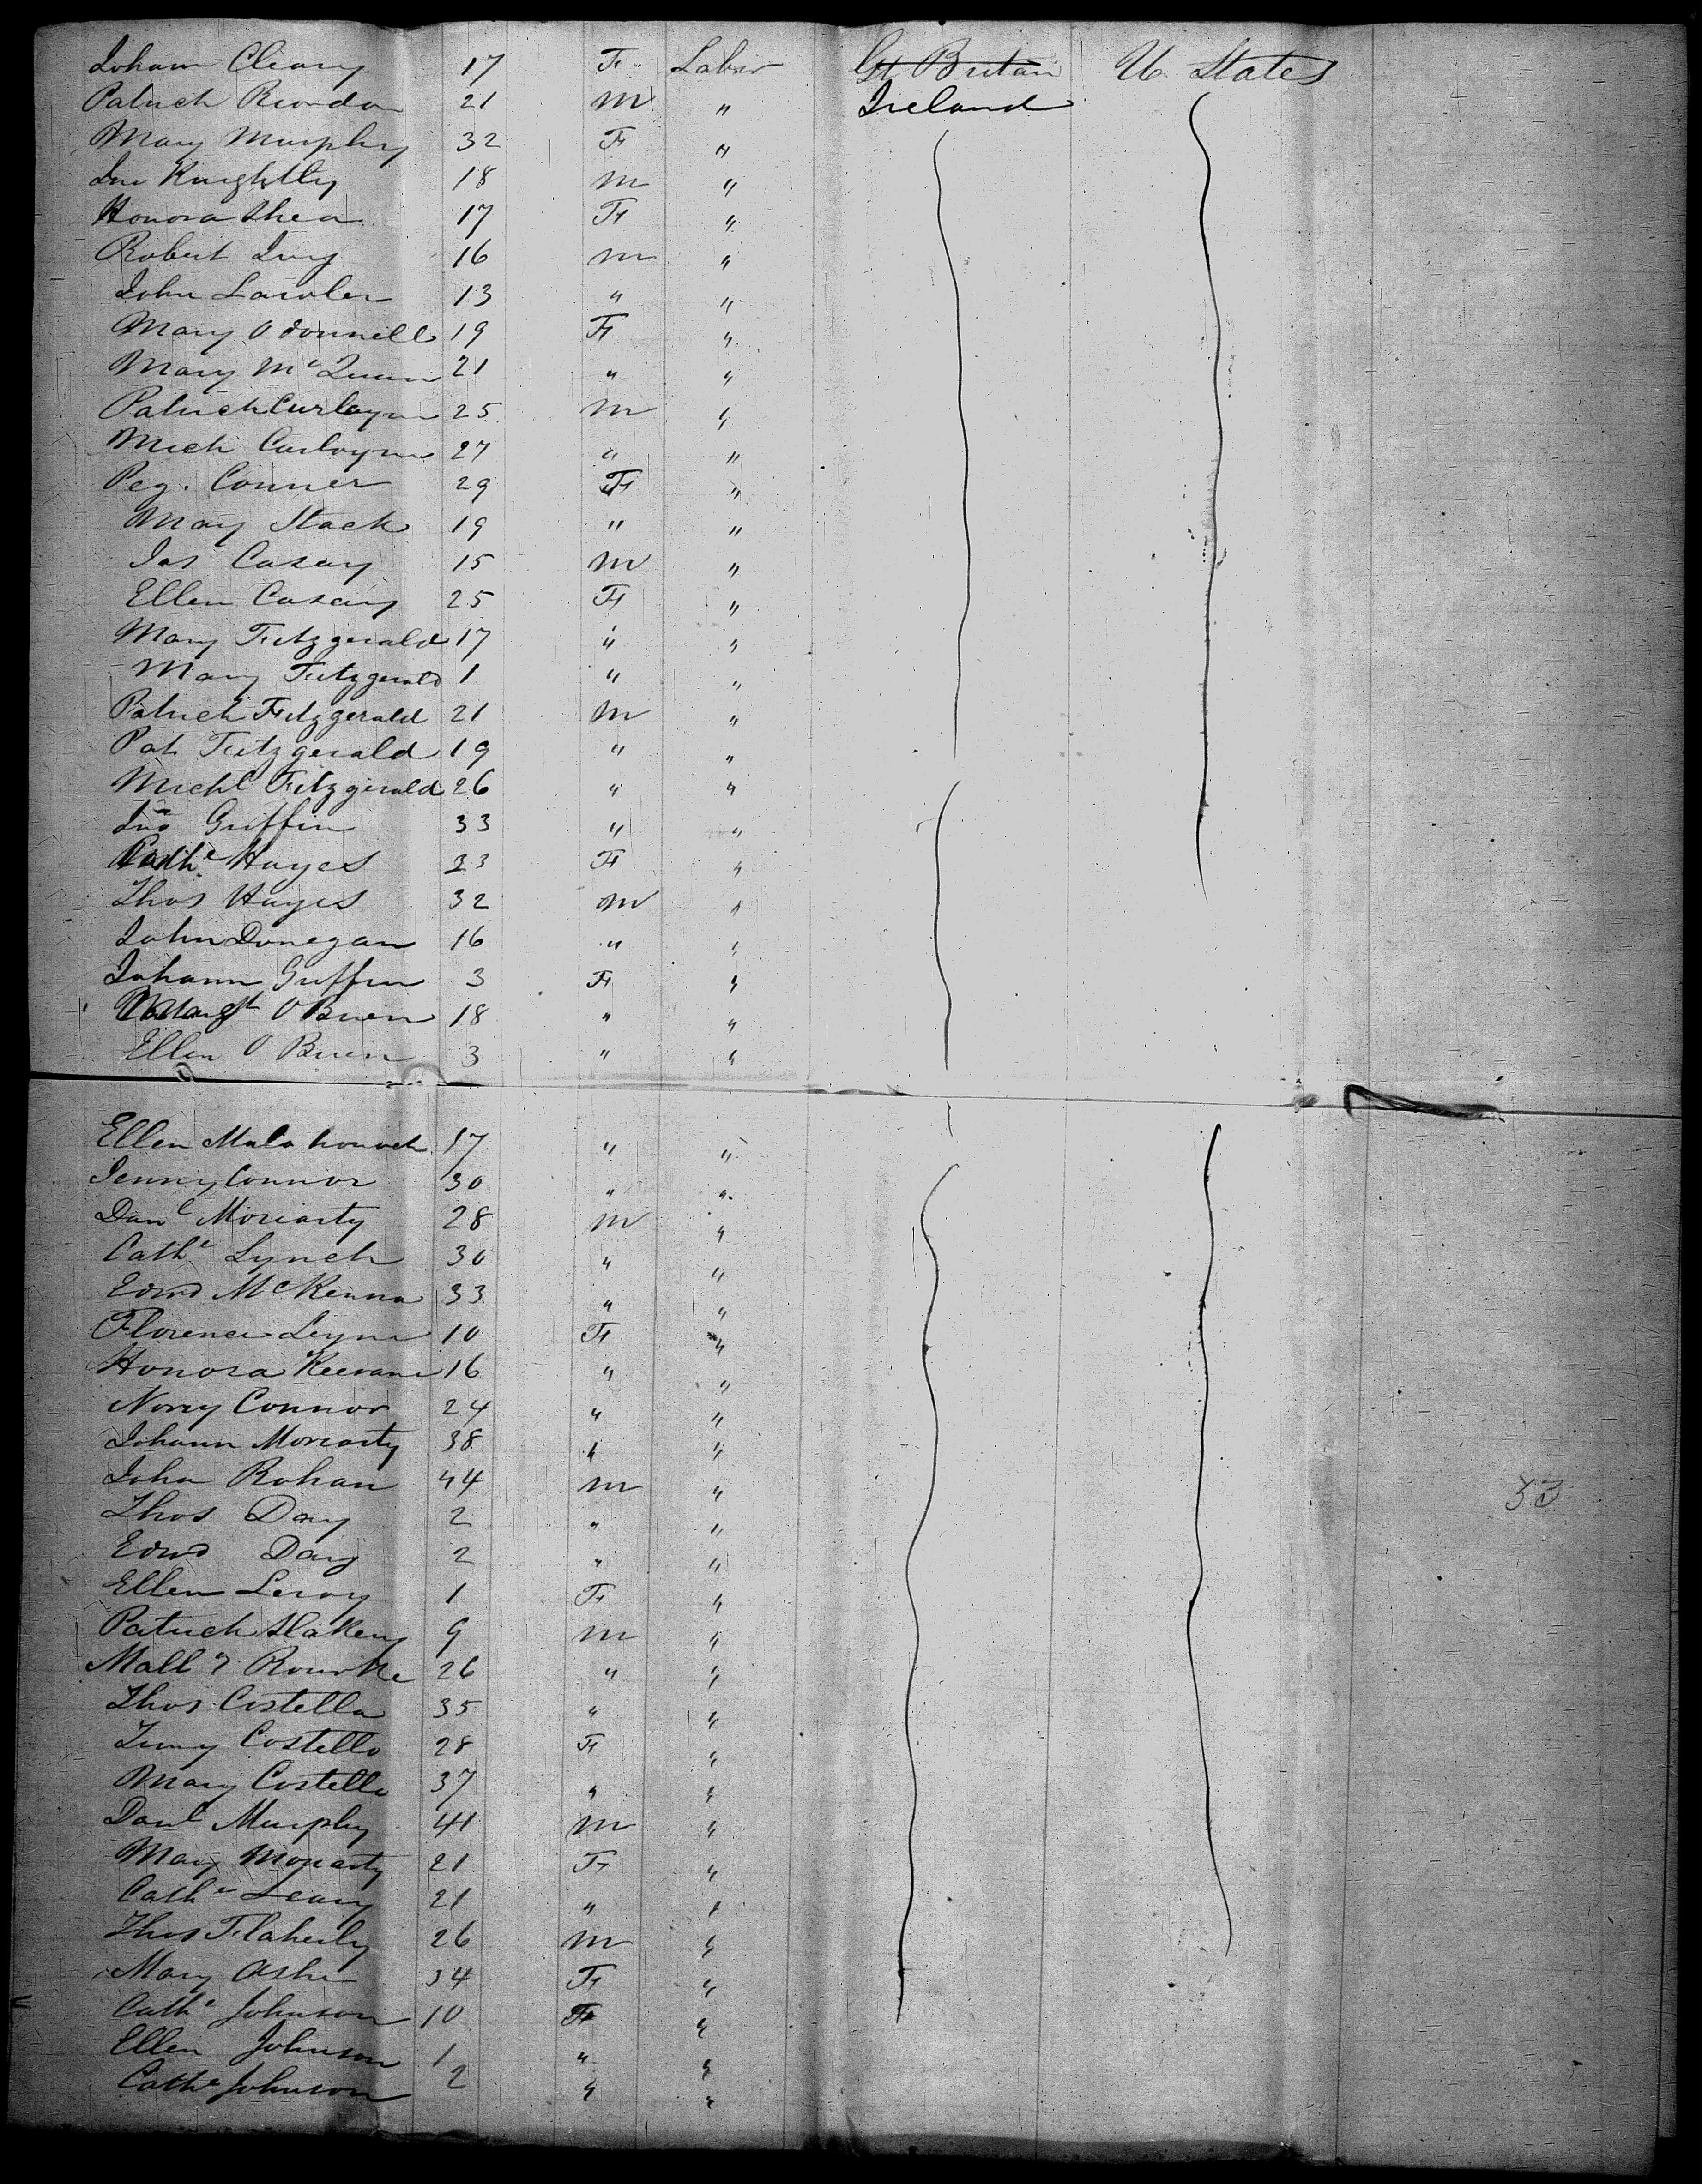 Johann Cleary 17 F. Labor Gt Britain U. States
Patrick Riordon 21 M " Ireland
Mary Murphy 32 F "
Jno Knightly 18 M "
Honora Shea 17 F "
Robert 16 M "
John Lawler 13 " "
Mary O Donnell 19 F "
Mary McQuinn 21 " "
Patrick Curlayne 25 M "
Mich Curlayne 27 " "
Peg. Conner 29 F "
Mary Stack 19 " "
Jas Casay 15 M "
Ellen Casay 25 F "
Mary Fitzgerald 17 " "
Mary Fitzgerald 1 " "
Patrick Fitzgerald 21 M "
Pat Fitzgerald 19 " "
Michl Fitzgerald 26 " "
Jno Griffin 33 " "
Cathe Hayes 23 F "
Thos Hayes 32 M "
John Donegan 16 " "
Johann Griffin 3 F "
Margt O Brien 18 " "
Ellen O Brien 3 " "
Ellen 17 " "
Jenny Connor 30 " "
Danl Moriarty 28 M "
Cathe Lynch 30 " "
Edwd McKenna 33 " "
Florence Leyne 10 F "
Honora Keevane 16 " "
Norry Connor 24 " "
Johann Moriarty 38 " "
John Rohan 44 M "
Thos Day 2 " "
Edwd Day 2 " "
Ellen Leroy 1 F "
Patrick Slakery 9 M "
Rourke 26 " "
Thos Costello 35 " "
Jenny Costello 28 F "
Mary Costello 37 " "
Danl Murphy 41 M "
Mary Moriarty 21 F "
Cathe Leary 21 " "
Thos Flaherty 26 M "
Mary Ashe 34 F "
Cathe Johnson 10 F "
Ellen Johnson 1 " "
Cathe Johnson 2 " "
33